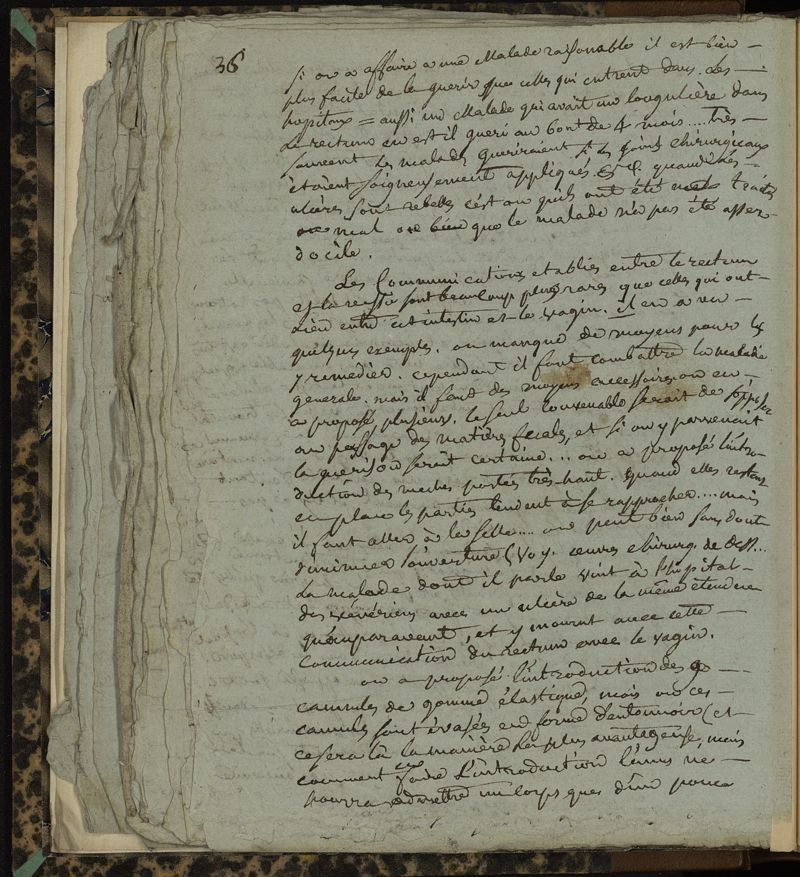 36
si on a affaire a une Malade raisonable il est bien —
plus facile de le guerir que celles qui entrent dans les —
hopitaux = aussi un Malade qui avait un
le rectum en est il gueri au bout de 4 mois .... très —
souvent les malades gueriraient si les soins chirurgicaux
étoient soigneusement appliqués. &c. quand les —
ulcères sont rebelles c'est ou qu'ils ont été traités
ou mal ou bien que le malade n'a pas été assez
docile.
Les Communications etablies entre le rectum
et la vessie sont beaucoup plus rares que celles qui ont —
lieu entre cet intestin et le vagin. Il en a vu —
quelques exemples. on manque de moyens pour les
y remedier. cependant il faut combattre la maladie
generale. mais il faut des moyens accessoires. on en —
a proposé plusieurs. le seul convenable serait de s'opposer
au passage des matières fecales, et si on y parvenoit
la guérison seroit certaine... on a proposé l'intro-
duction des meches portées très-haut. quand elles restent
en place les parties tendent à se rapprocher.... mais
il faut aller à la selle.... on peut bien sans doute
diminuer l'ouverture (Voy. œuvres chirurg. de des...
La malade dont il parle vint à l'hopital —
des vénériens avec un ulcère de la même étendue
qu'auparavant, et y mourut avec cette —
communication du rectum avec le vagin.
on a proposé l'introduction des —
cannules de gomme élastique, mais ces —
canules sont évasées en forme d'entonnoir (et
ce sera là la manière la plus avantageuse, mais
comment en faire l'introduction l'anus ne —
pourra admettre un corps que d'un pouce